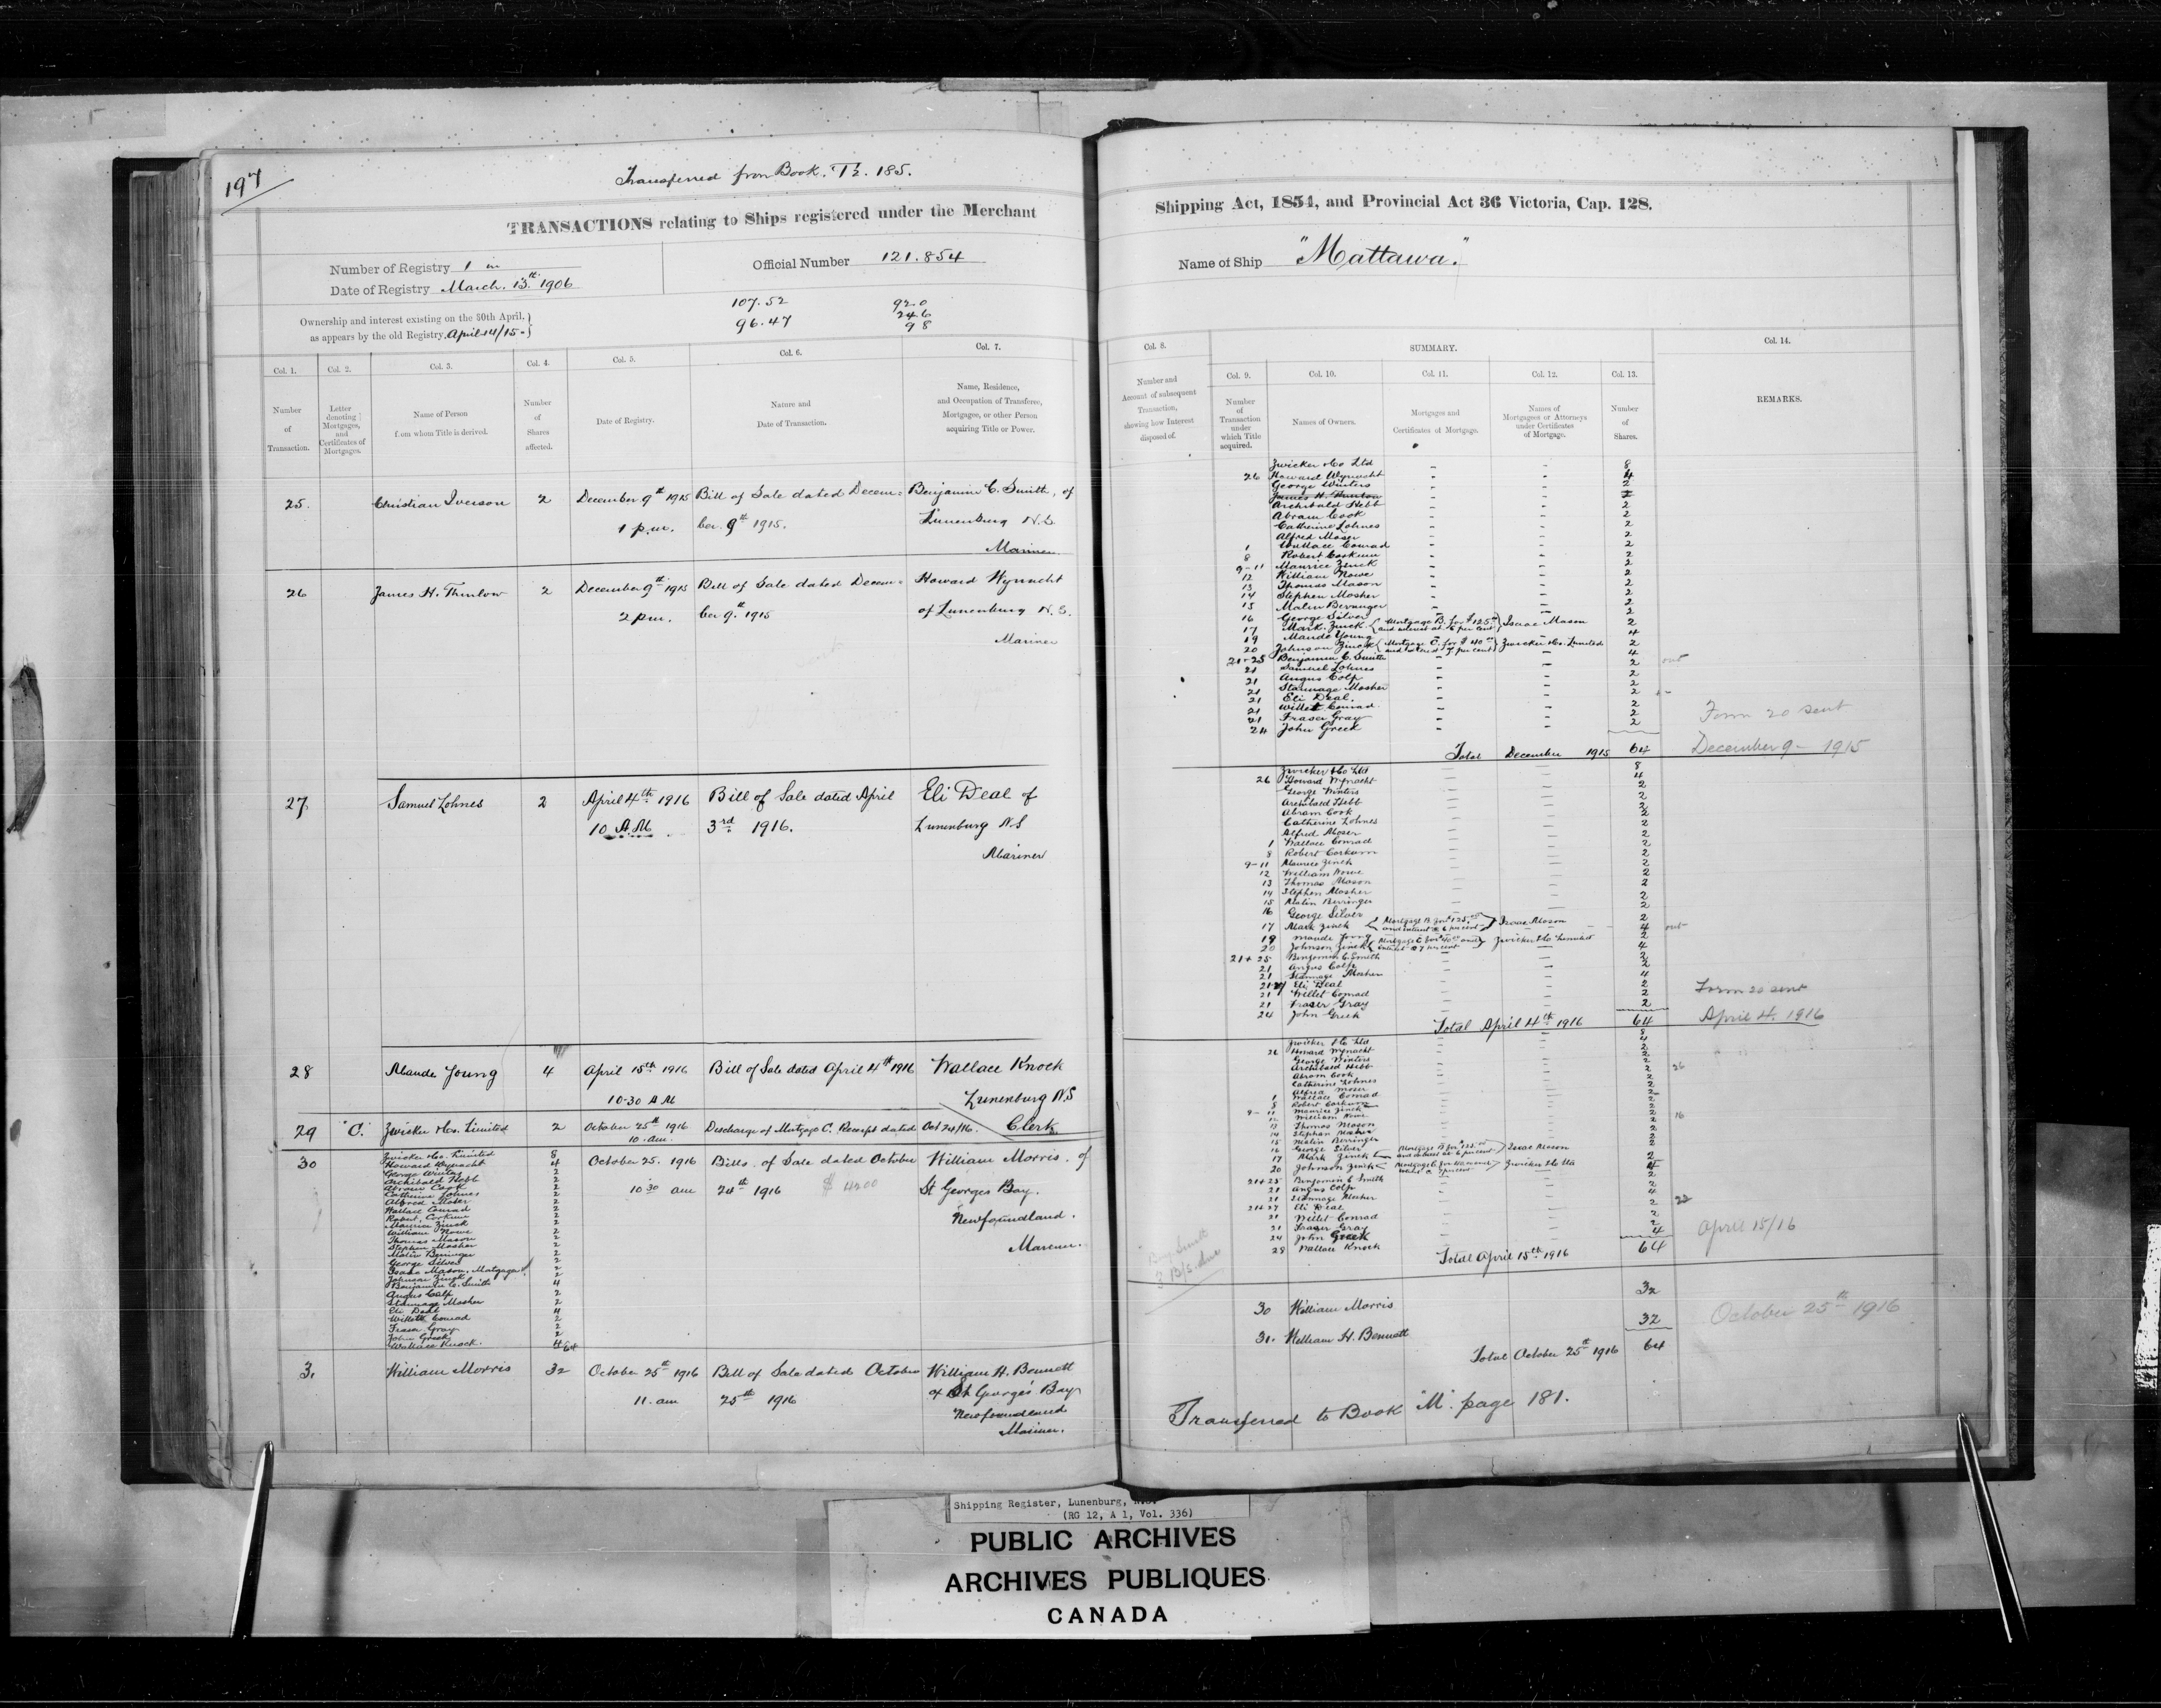 197
Transferred from Book. 185.
TRANSACTIONS relating to Ships registered under the Merchant
Number of Registry 1 in
Date of Registry March. 13th 1906
Official Number 121.854
Ownership and interest existing on the 30th April,
as appears by the old Registry. April 14/15
107.52
96.47
92.0
24.6
9 8
Col. 1. Col. 2. Col. 3. Col. 4. Col. 5. Col. 6. Col. 7.
Number of Transaction.
Letter denoting Mortgages, and Certificates of Mortgages.
Name of Person from whom Title is derived.
Number of Shares affected.
Date of Registry.
Nature and Date of Transaction.
Name, Residence, and Occupation of Transferee, Mortgagee, or other Person acquiring Title or Power.
25. Christian Iverson 2 December 9th 1915 Bill of Sale dated Decem= Benjamin C. Smith, of
1 p.m. ber 9th 1915. Lunenburg N.S.
Mariner
26 James H. Thurlow 2 December 9th 1915 Bill of Sale dated Decem= Howard Wynacht
2 pm. ber 9th 1915 of Lunenburg N.S.
Mariner
27 Samuel Lohnes 2 April 4th 1916 Bill of Sale dated April Eli Deal of
10 A.M. 3rd 1916. Lunenburg N.S
Mariner
28 Maude Young 4 April 15th 1916 Bill of Sale dated April 4th 1916 Wallace Knock
10-30 A M Lunenburg N.S
Clerk
29 "C." Zwicker & Co. Limited 2 October 25th 1916 Discharge of Mortgage C. Receipt dated Oct 24/16.
10. am.
30 Zwicker & Co. Limited 8 October 25. 1916 Bills of Sale dated October William Morris. of
Howard Wynacht 4
George Winters 2
Archibald Hebb 2 10 30 am 24th 1916 $ 4200 St Georges Bay.
Abram Cook 2
Catherine Lohnes 2
Alfred Moser 2
Wallace Conrad 2 Newfoundland.
Robert Corkum 2
Maurice Zinck 2
William Nowe 2
Thomas Mason 2 Mariner.
Stephen Mosher 2
Malin Beringer 2
George Silver 2
Isaac Mason. Mortgagee 2
Johnson Zinck 2
Benjamin C. Smith 4
Angus Colp 2
Stannage Mosher 2
Eli Deal 4
Willett Conrad 2
Fraser Gray 2
John Greek 2
Wallace Knock. 4 64
31 William Morris 32 October 25th 1916 Bill of Sale dated October William H. Bennett
11. am 25th 1916 of St George's Bay
Newfoundland
Mariner.
Shipping Act, 1854, and Provincial Act 36 Victoria, Cap. 128.
Name of Ship "Mattawa."
Col. 8. SUMMARY. Col. 14.
Col. 9. Col. 10. Col. 11. Col. 12. Col. 13.
Number and Account of subsequent Transaction, showing how Interest disposed of.
Number of Transaction under which Title acquired.
Names of Owners.
Mortgages and Certificates of Mortgage.
Names of Mortgagees or Attorneys under Certificates of Mortgage.
Number of Shares.
REMARKS.
Zwicker & Co Ltd 8
26 Howard Wynacht 4
George Winters 2
James H. Thurlow
Archibald Hebb 2
Abram Cook 2
Catherine Lohnes 2
Alfred Moser 2
1 Wallace Conrad 2
8 Robert Corkum 2
9-11 Maurice Zinck 2
12 William Nowe 2
13 Thomas Mason 2
14 Stephen Mosher 2
15 Malin Beranger 2
16 George Silver 2
17 Mark Zinck Mortgage B. for $125.00 and interest at 6 per cent Isaac Mason 2
19 Maude Young 4
20 Johnson Zinck Mortgage C. for $ 40 00 and interest 7 per cent Zwicker & Co. Limited 2
21-25 Benjamin C. Smith 4
21 Samuel Lohnes 2 out
21 Angus Colp 2
21 Stannage Mosher 2
21 Eli Deal. 2
21 Willet Conrad 2
21 Fraser Gray 2
24 John Greek 2
Form 20 sent
Total December 1915 64 December 9 - 1915
Zwicker & Co Ltd 8
26 Howard Wynacht 4
George Winters 2
Archibald Hebb 2
Abram Cook 2
Catherine Lohnes 2
Alfred Moser 2
1 Wallace Conrad 2
8 Robert Corkum 2
9-11 Maurice Zinck 2
12 William Nowe 2
13 Thomas Mason 2
14 Stephen Mosher 2
15 Malin Berringer 2
16 George Silver 2
17 Mark Zinck Mortgage B for $125.00 and interest @ 6 per cent Isaac Mason 2
19 Maude Young 4 out
20 Johnson Zinck Mortgage C for $40 00 and interest @ 7 per cent Zwicker & Co Limited 2
21+25 Benjamin C. Smith 4
21 Angus Colp 2
21 Stannage Mosher 2
21 27 Eli Deal 4
21 Willet Conrad 2
21 Fraser Gray 2
24 John Greek 2
Form 20 sent
Total April 4th 1916 64 April 4. 1916
Zwicker & Co Ltd 8
26 Howard Wynacht 4
George Winters 2
Archibald Hebb 2 26
Abram Cook 2
Catherine Lohnes 2
Moser 2
1 Wallace Conrad 2
8 Robert Corkum 2
9-11 Maurice Zinck 2 16
12 William Nowe 2
13 Thomas Mason 2
14 Stephen Mosher 2
15 Malin Berringer 2
16 George Silver 2
17 Mark Zinck Mortgage B for $125.00 and interest at 6 per cent Isaac Mason 2
20 Johnson Zinck Zwicker & Co Ltd
21+25 Benjamin C Smith
21 Angus Colp 2
21 Stannage Mosher 2
21+27 Eli Deal 4 22
21 Willet Conrad 2
21 Fraser Gray 2
24 John Greek 2
28 Wallace Knock 4
Total April 15th 1916 64 April 15/16
30 William Morris 32
31. William H. Bennett 32 October 25th 1916
Total October 25th 1916 64
Transferred to Book "M". page 181.
Shipping Register, Lunenburg, N.S.
(RG 12, A 1, Vol. 336)
PUBLIC ARCHIVES
ARCHIVES PUBLIQUES
CANADA